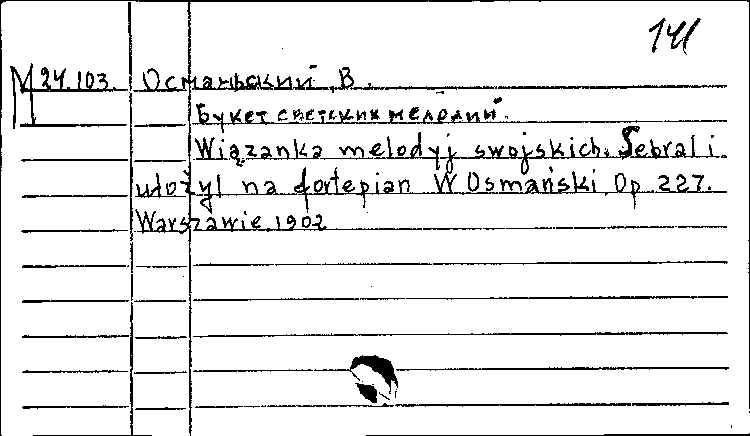 141
M 24.103. Османьский, В.
Букет светских мелодий.
Wiązanka melodyj swojskich. Sebral i
ułożył na fortepian W. Osmański. Op 227.
Warszawie, 1902